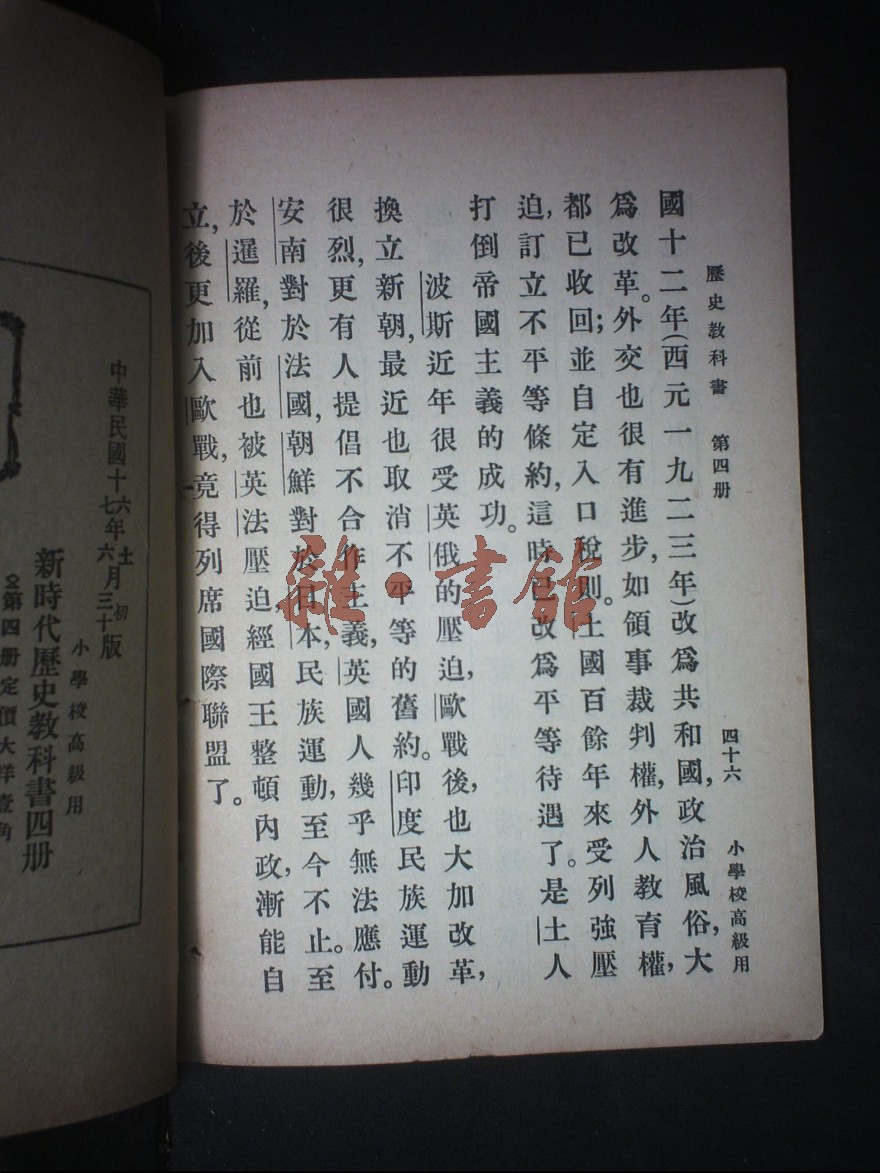 歷史教科書 第四册 四十六 小學校高級用
國十二年(西元一九二三年)改爲共和國,政治風俗,大
爲改革。外交也很有進步,如領事裁判權,外人教育權,
都已收回;並自定入口稅則。土國百餘年來受列強壓
迫,訂立不平等條約,這時已改爲平等待遇了。是土人
打倒帝國主義的成功。
波斯近年很受英俄的壓迫,歐戰後,也大加改革,
換立新朝,最近也取消不平等的舊約。印度民族運動
很烈,更有人提倡不合作主義,英國人幾乎無法應付。
安南對於法國,朝鮮對於日本,民族運動,至今不止。至
於暹羅,從前也被英法壓迫經國王整頓內政,漸能自
立,後更加入歐戰,竟得列席國際聯盟了。
中華民國十六年十七年六月三十版
小學校高級用
新時代歷史教科書四册
第四册定價大洋壹角
雜·書館